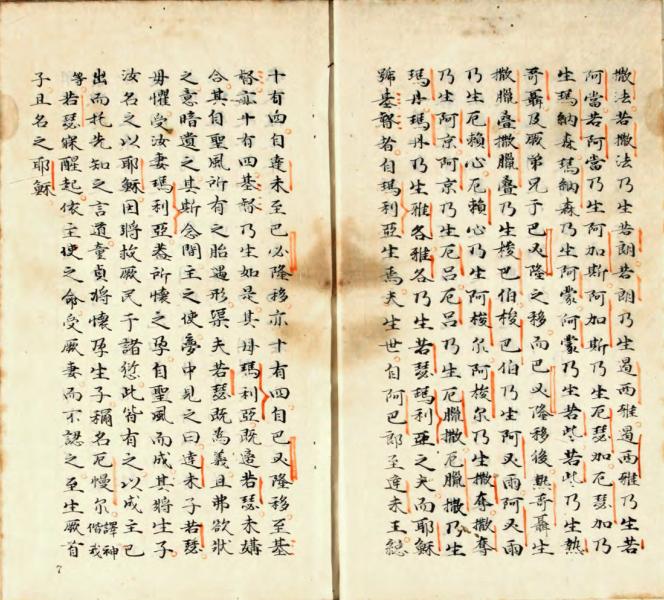 撒法若撒法乃生若朗若朗乃生過西雅過西雅乃生若
阿當若阿當乃生阿加斯阿加斯乃生厄瑟加厄瑟加乃
生瑪納森瑪納森乃生阿蒙阿蒙乃生若些若些乃生熱
哥聶及厥弟兄于巴必隆之移而巴必隆移後熱哥聶生
撒臘叠撒臘叠乃生梭巴伯梭巴伯乃生阿必雨阿必雨
乃生厄賴心厄賴心乃生阿梭尔阿梭尔乃生撒奪撒奪
乃生阿京阿京乃生厄呂厄呂乃生厄臘撒厄臘撒乃生
瑪丹瑪丹乃生雅各雅各乃生若瑟瑪利亞之夫而耶穌
號基督者自瑪利亞生焉夫生世自阿巴郎至達未王總
十有四自達未至巴必隆移亦十有四自巴必隆移至基
督亦十有四基督乃生如是其母瑪利亞既適若瑟未媾
合其自聖風所有之胎過形渠夫若瑟既為義且弗欲狀
之意暗遺之其斯念間主之使夢中見之曰達未子若瑟
毋懼受汝妻瑪利亞葢所懷之孕自聖風而成其將生子
汝名之以耶穌因將救厥民于諸愆此皆有之以成主已
出而托先知之言道童貞將懷孕生子稱名厄慢尔譯神偕我
等若瑟寐醒起依主使之命受厥妻而不認之至生厥首
子且名之耶穌
7